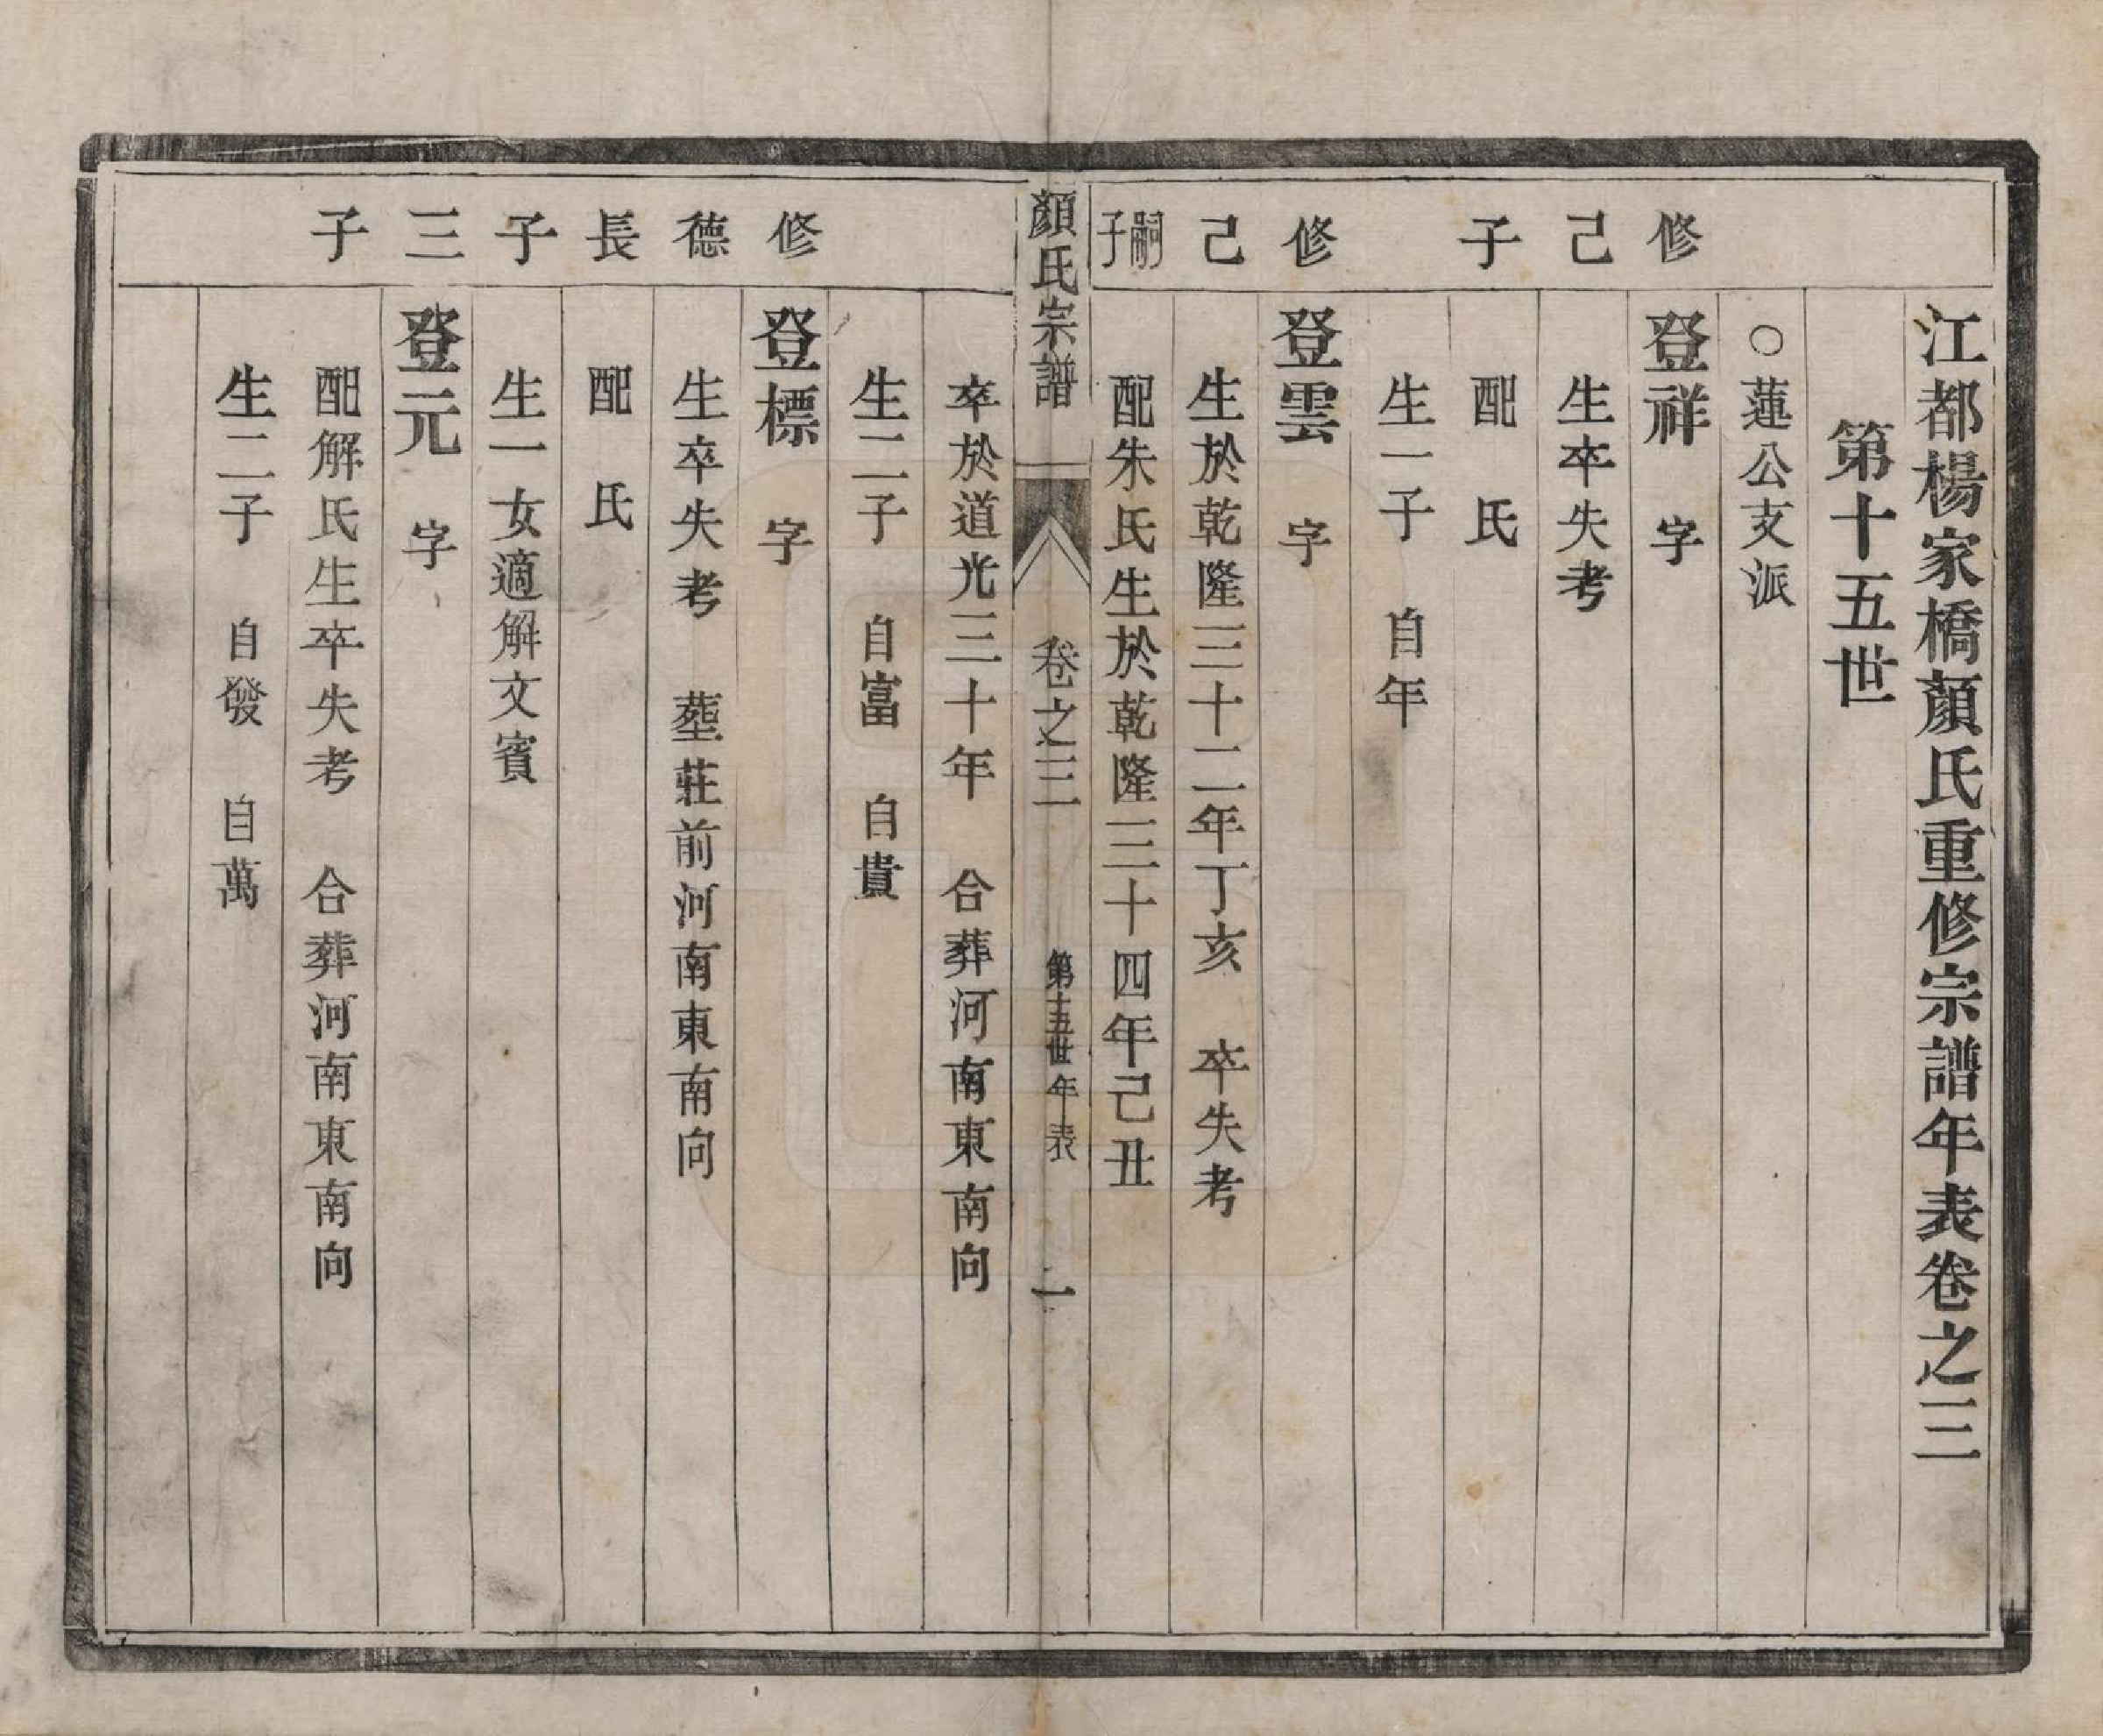 江都楊家橋顏氏重修宗譜年表卷之三
第十五世
○蓮公支派
修己子
登祥 字
生卒失考
配 氏
生一子 自年
修己嗣子
登雲 字
生於乾隆三十二年丁亥 卒失考
配朱氏生於乾隆三十四年己丑
顏氏宗譜 卷之三 第十五世年表 一
卒於道光三十年 合葬河南東南向
生二子 自富 自貴
修德長子
登標 字
生卒失考 塟莊前河南東南向
配 氏
生一女適解文賓
三子
登元 字
配解氏生卒失考 合葬河南東南向
生二子 自發 自萬